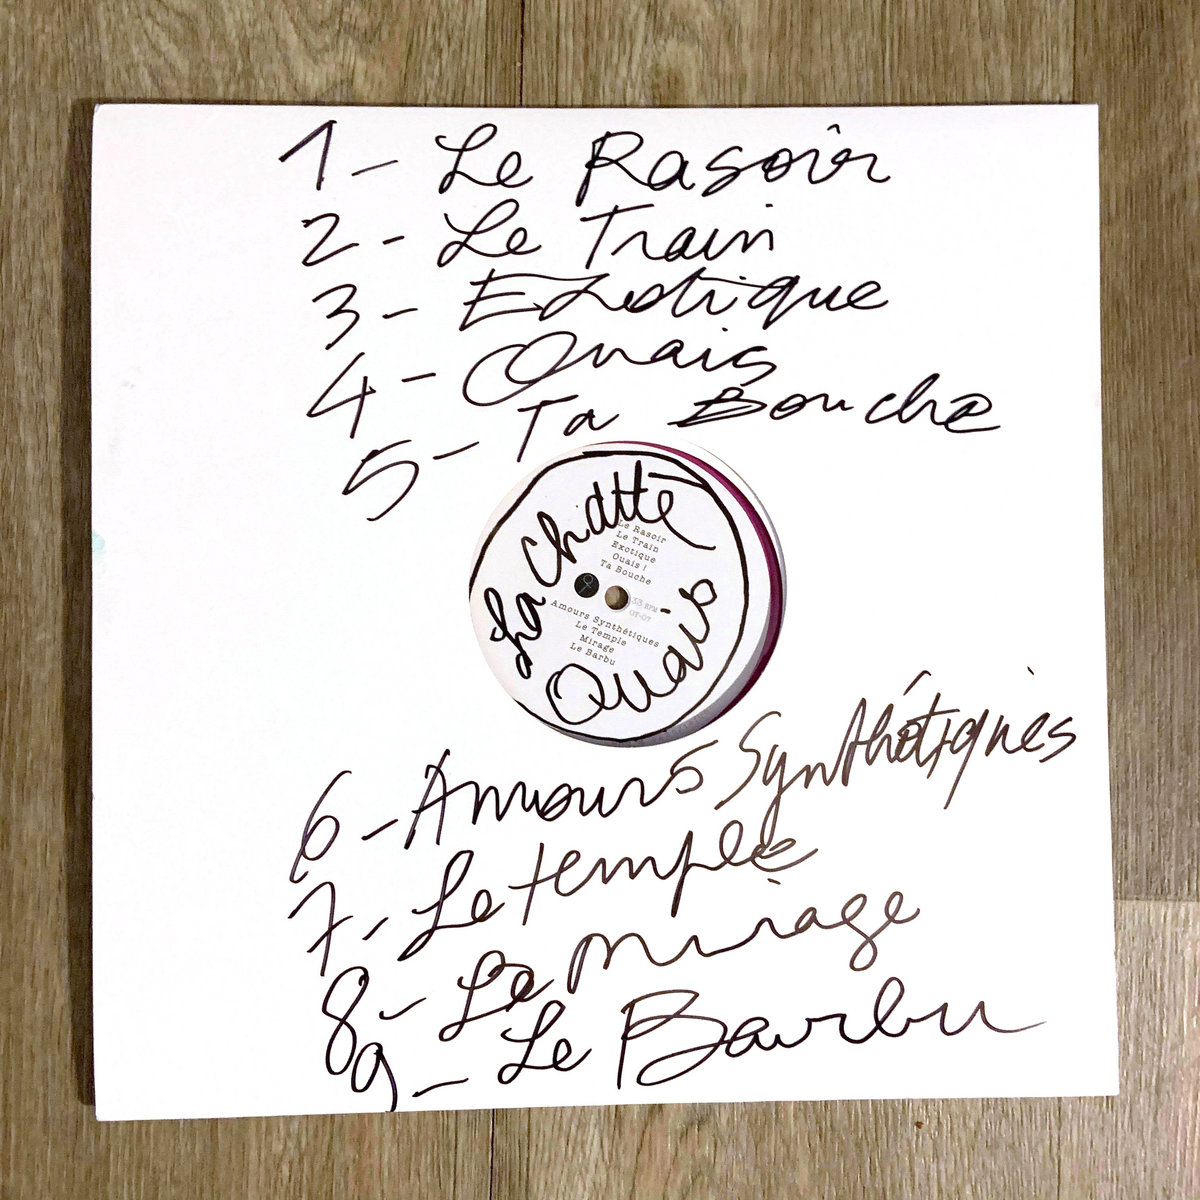 1- Le Rasoir
2- Le Train
3- EXotique
4- Ouais
5- Ta Bouche
La Chatte
Le Rasoir
Le Train
Exotique
Ouais !
Ta Bouche
33 RPM
OT-07
Amours Synthétiques
Le Temple
Mirage
Le Barbu
Ouais
6- Amours Synthétiques
7- Le temple
8- Le mirage
9- Le Barbu